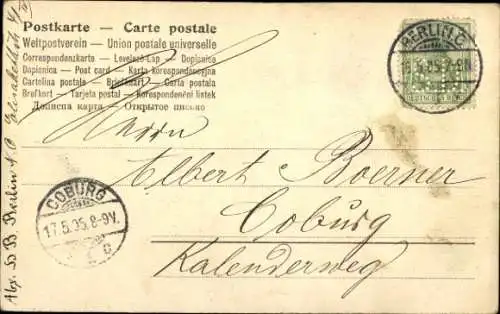 Postkarte — Carte postale
Weltpostverein — Union postale universelle
Correspondenzkarte — Levelező-Lap — Dopisnice
Dopisnica — Post card — Karta korespondencyjna
Cartolina postale — Briefkaart — Carta postale
Brefkort — Tarjeta postal — Korespondenční lístek
Дописна карта — Открытое письмо
BERLIN C.
Herrn
Albert Boerner
Coburg
Kalenderweg
COBURG
17.5.05.8-9V.
Berlin